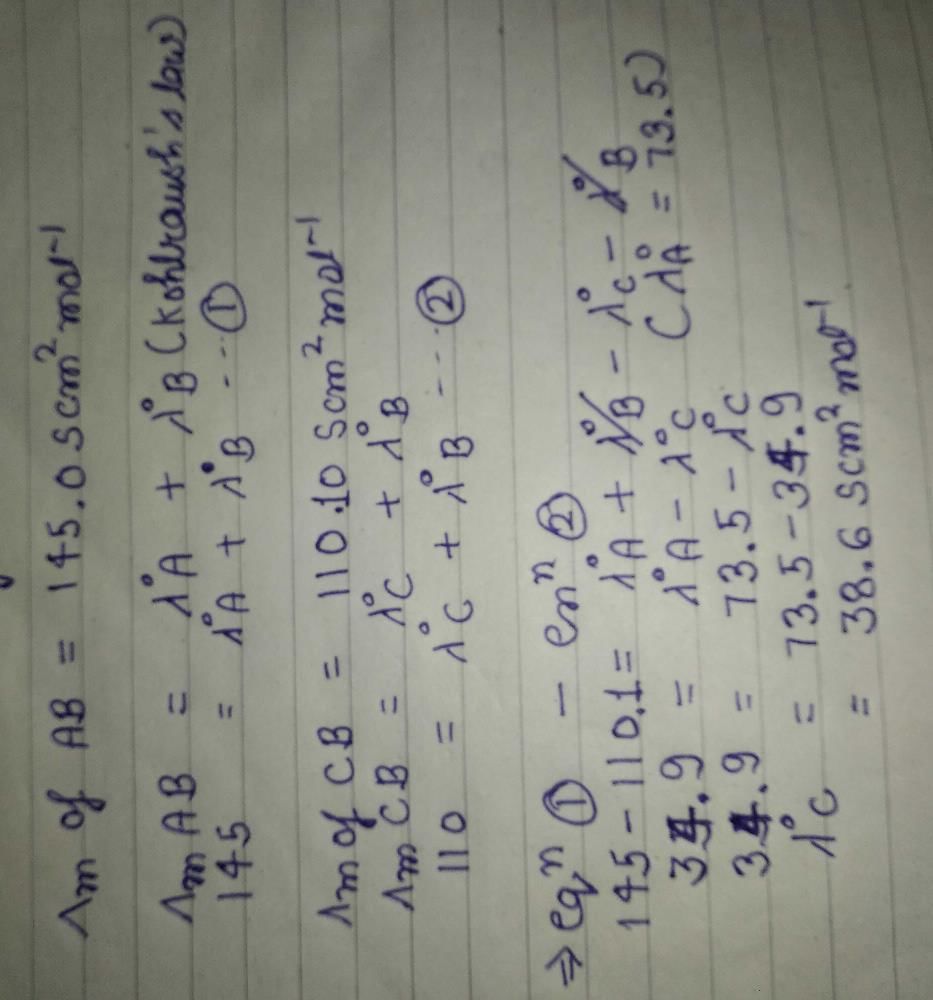 Λm of AB = 145.0 S cm² mol⁻¹
Λm AB = λ°A + λ°B (Kohlraush's law)
145 = λ°A + λ°B ... ①
Λm of CB = 110.10 S cm² mol⁻¹
Λm CB = λ°C + λ°B
110 = λ°C + λ°B ... ②
⇒ eqⁿ ① - eⁿ ②
145 - 110.1 = λ°A + λ°B - λ°C - λ°B
34.9 = λ°A - λ°C (λ°A = 73.5)
34.9 = 73.5 - λ°C
λ°C = 73.5 - 34.9
= 38.6 S cm² mol⁻¹